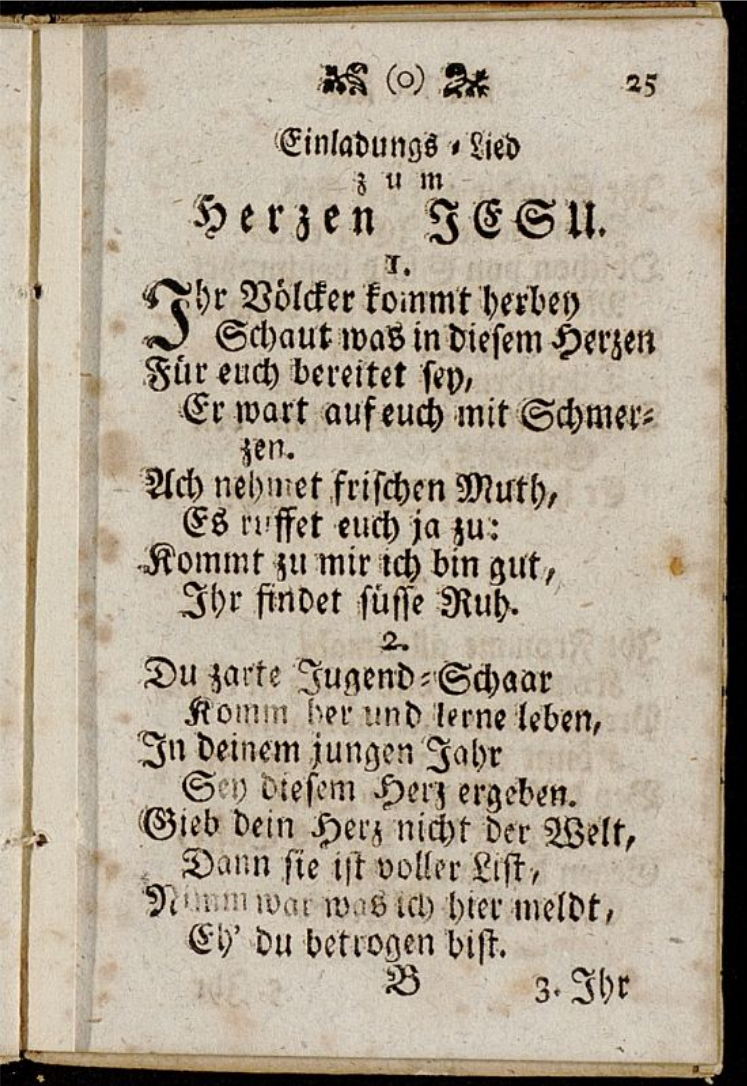 (o) 25
Einladungs-Lied
zum
Herzen JESU.
1.
Ihr Völcker kommt herbey
Schaut was in diesem Herzen
Für euch bereitet sey,
Er wart auf euch mit Schmer-
zen.
Ach nehmet frischen Muth,
Es ruffet euch ja zu:
Kommt zu mir ich bin gut,
Ihr findet süsse Ruh.
2.
Du zarte Jugend-Schaar
Komm her und lerne leben,
In deinem jungen Jahr
Sey diesem Herz ergeben.
Gieb dein Herz nicht der Welt,
Dann sie ist voller List,
Nimm war was ich hier meldt,
Eh' du betrogen bist.
B 3. Ihr